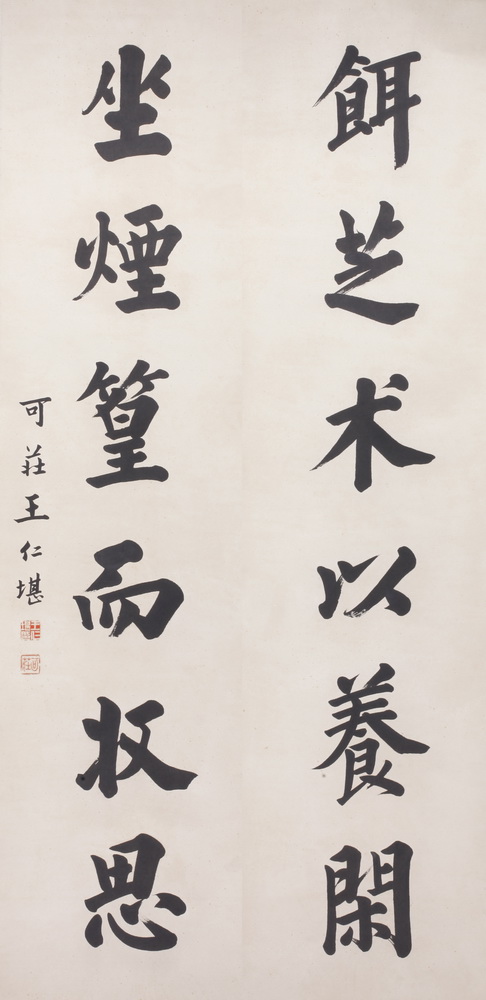 餌芝术以養閑
坐煙篁而收思
可莊王仁堪